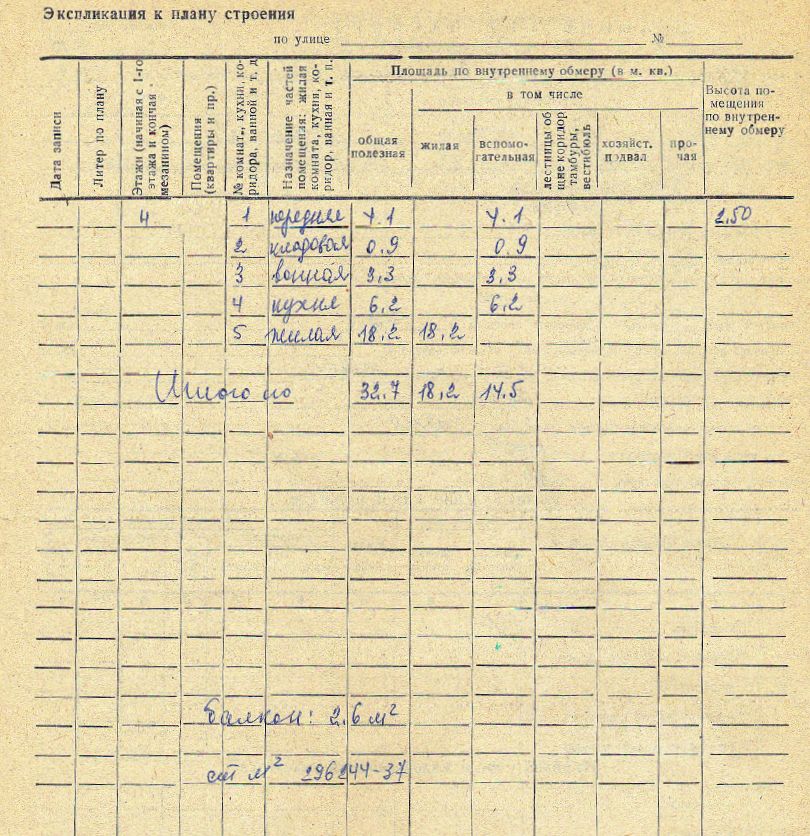 Экспликация к плану строения
по улице №
Дата записи
Литер по плану
Этажи (начиная с 1-го этажа и кончая мезанином)
Помещения (квартиры и пр.)
№ комнат., кухни, коридора, ванной и т. д.
Назначение частей помещения: жилая комната, кухня, коридор, ванная и т. п.
Площадь по внутреннему обмеру (в м. кв.)
в том числе
общая полезная
жилая
вспомогательная
лестницы общие коридор тамбуры, вестибюль
хозяйст. подвал
прочая
Высота помещения по внутреннему обмеру
4 1 передняя 4.1 4.1 2,50
2 кладовая 0.9 0.9
3 ванная 3,3 3,3
4 кухня 6,2 6,2
5 жилая 18,2 18,2
Итого по 32,7 18,2 14.5
балкон: 2,6 м²
м² 296244-37